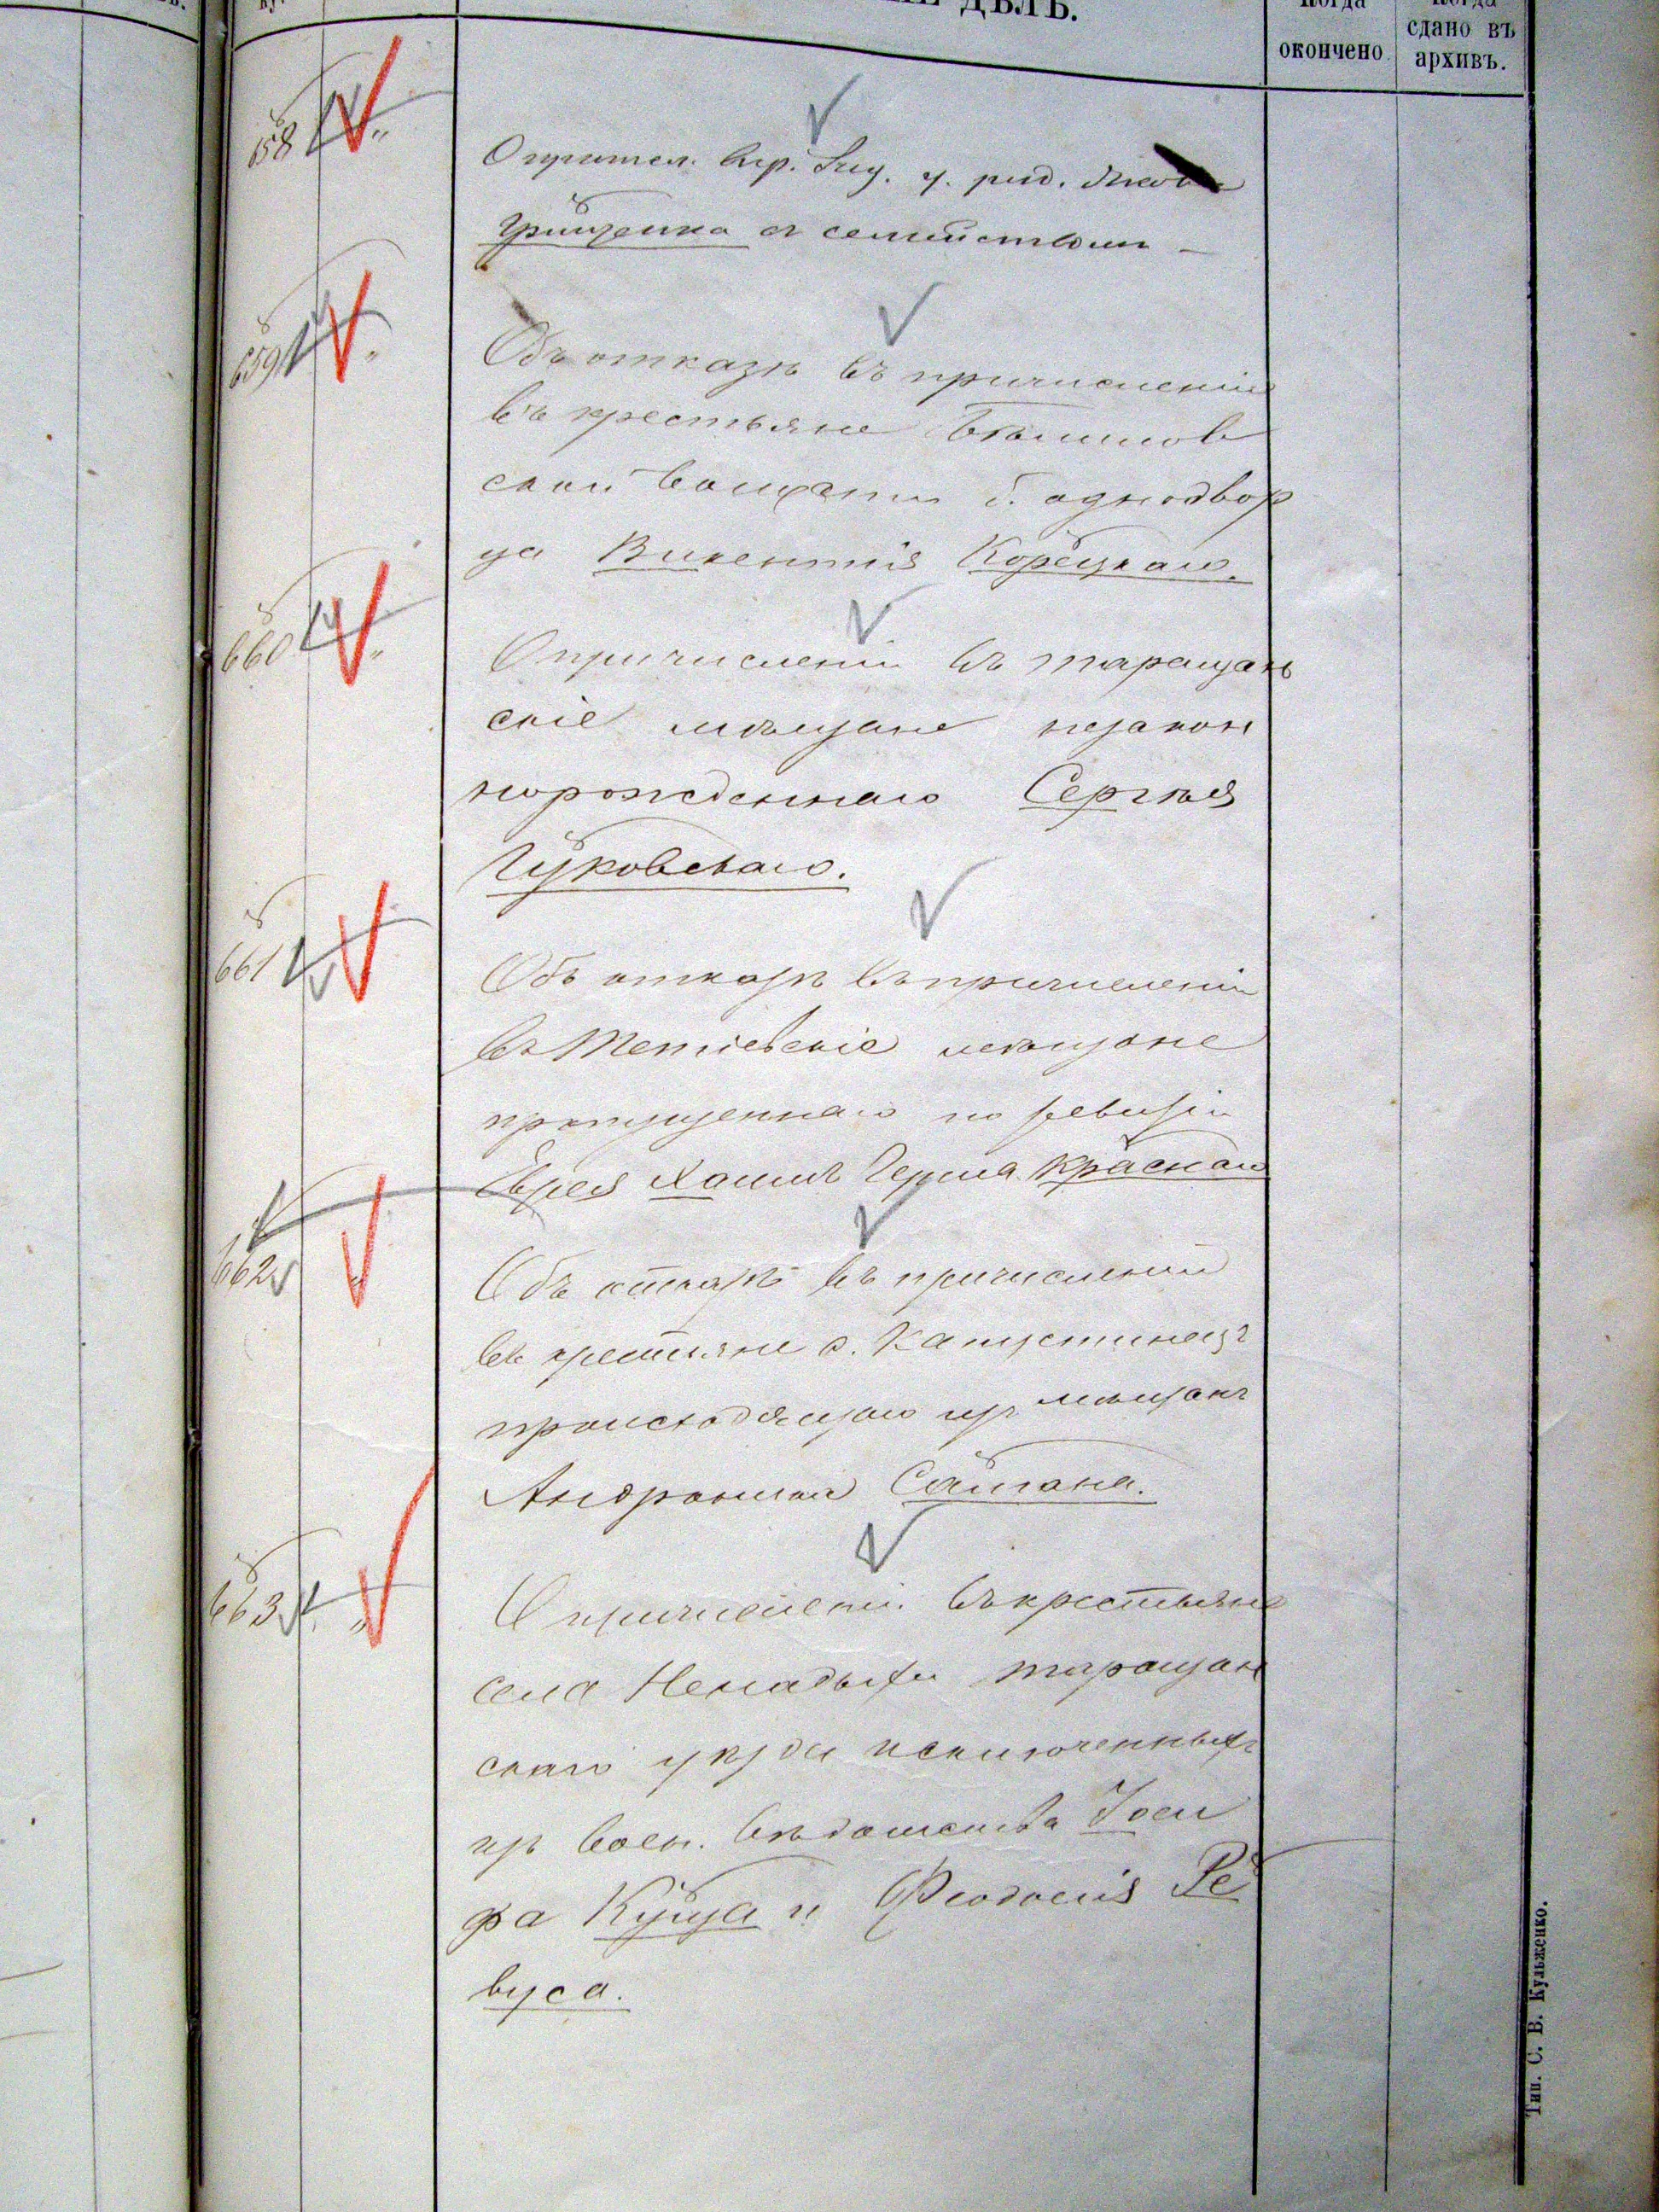 ДѢЛЪ.
Когда
окончено.
Когда
сдано въ
архивъ.
658 "
О причисл. кр. у. ряд.
Грищенка съ семействомъ –
659 "
Объ отказѣ въ причисленіи
въ крестьяне
ской волости б. однодвор
ца Викентія Корецкаго.
660 "
О причисленіи въ таращан
скіе мѣщане незакон
норожденнаго Сергѣя
Чуковскаго.
661
Объ отказѣ въ причисленіи
въ Тетіевскіе мѣщане
пропущеннаго по ревизіи
Еврея Краснаго
662 "
Объ отказѣ въ причисленіи
въ крестьяне с. Капустинецъ
происходящаго изъ мѣщанъ
Андроника
663 "
О причисленіи въ крестьяне
села Ненадыхи таращан
скаго уѣзда исключенныхъ
изъ воен. вѣдомства Іоси
фа Куцца и Феодосія Ре
вуса.
Тип. С. В. Кульженко.